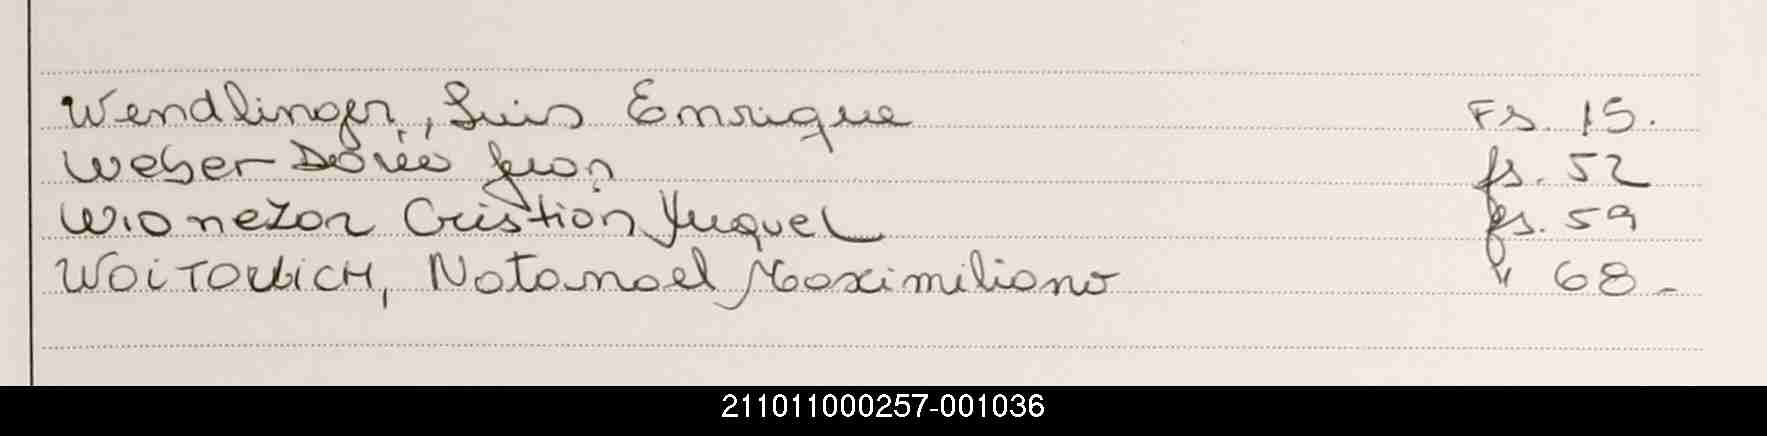 Wendlinger, Luis Enrique Fs. 15.
Weber Juan fs. 52
Cristian Miguel fs. 59
WOITOVICH, Natanael Maximiliano " 68-
211011000257-001036